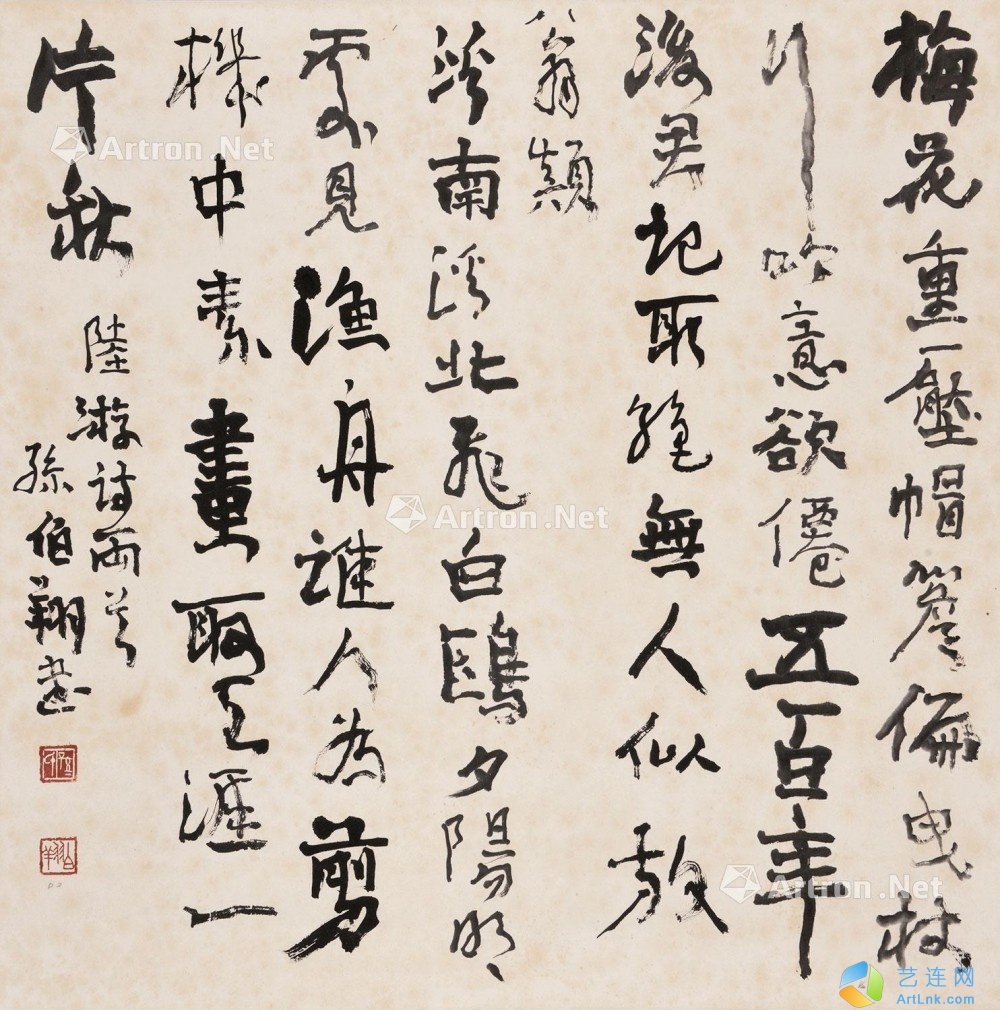 梅花重壓帽簷偏曳杖
行吟意欲僊五百年
後君記取絕無人似放
翁顛
溪南溪北飛白鷗夕陽明
處見漁舟誰人為剪
機中素畫取天涯一
片秋
陸游詩兩首
孫伯翔書
Artron.Net
Artron.Net
Artron.Net
艺连网
ArtLnk.com